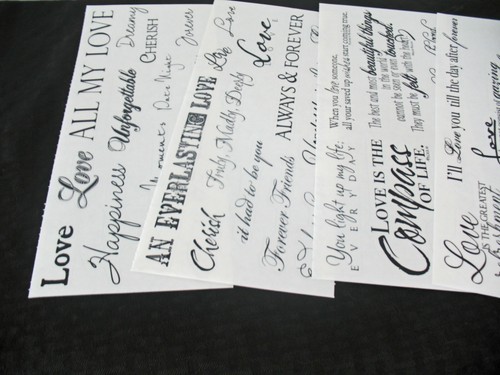 Love Love ALL MY LOVE
Happiness Unforgettable Dreamy
CHERISH
Moments Forever
AN EVERLASTING LOVE Love
Cherish Truly, Madly, Deeply Love
it had to be you
Forever Friends ALWAYS & FOREVER
When you love someone
all your saved up wishes start coming true.
You light up my life.
EVERYDAY
The best and most beautiful things
in the world
cannot be seen or even touched.
They must be felt with the heart
LOVE IS THE
Compass
OF LIFE.
I'll Love you till the day after forever
Love
IS THE GREATEST
Love